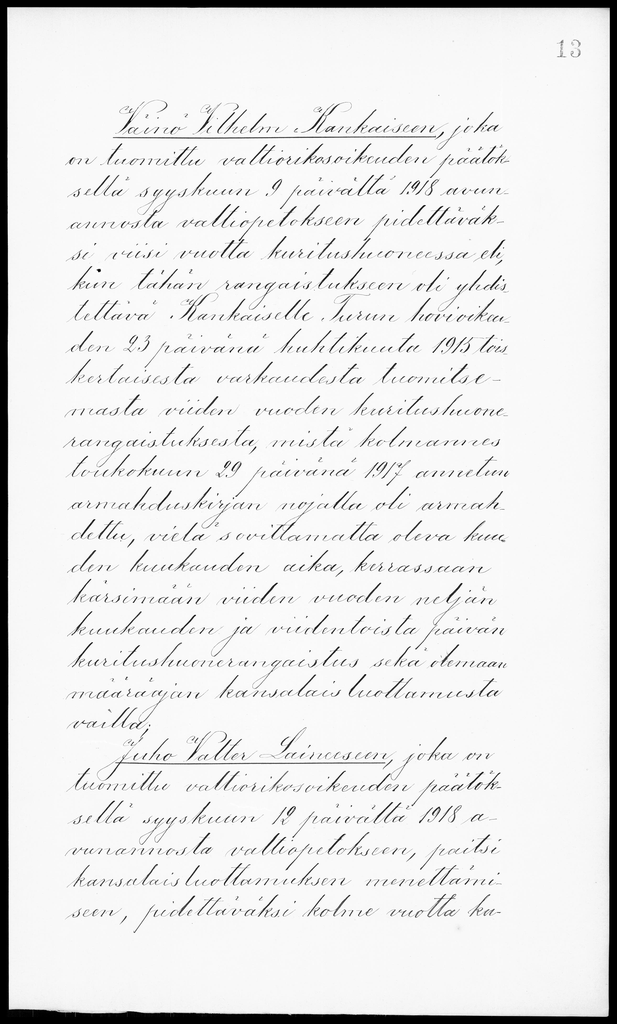 13
Väinö Vilhelm Kankaiseen, joka
on tuomittu valtiorikosoikeuden päätök-
sellä syyskuun 9 päivältä 1918 avun-
annosta valtiopetokseen pidettäväk-
si viisi vuotta kuritushuoneessa eli,
kun tähän rangaistukseen oli yhdis-
tettävä Kankaiselle Turun hovioikeu-
den 23 päivänä huhtikuuta 1915 tois-
kertaisesta varkaudesta tuomitse-
masta viiden vuoden kuritushuone-
rangaistuksesta, mistä kolmannes
toukokuun 29 päivänä 1917 annetun
armahduskirjan nojalla oli armah-
dettu, vielä sovittamatta oleva kuu-
den kuukauden aika, kerrassaan
kärsimään viiden vuoden neljän
kuukauden ja viidentoista päivän
kuritushuonerangaistus sekä olemaan
määräajan kansalaisluottamusta
vailla;
Juho Valter Laineeseen, joka on
tuomittu valtiorikosoikeuden päätök-
sellä syyskuun 12 päivältä 1918 a-
vunannosta valtiopetokseen, paitsi
kansalaisluottamuksen menettämi-
seen, pidettäväksi kolme vuotta ku-